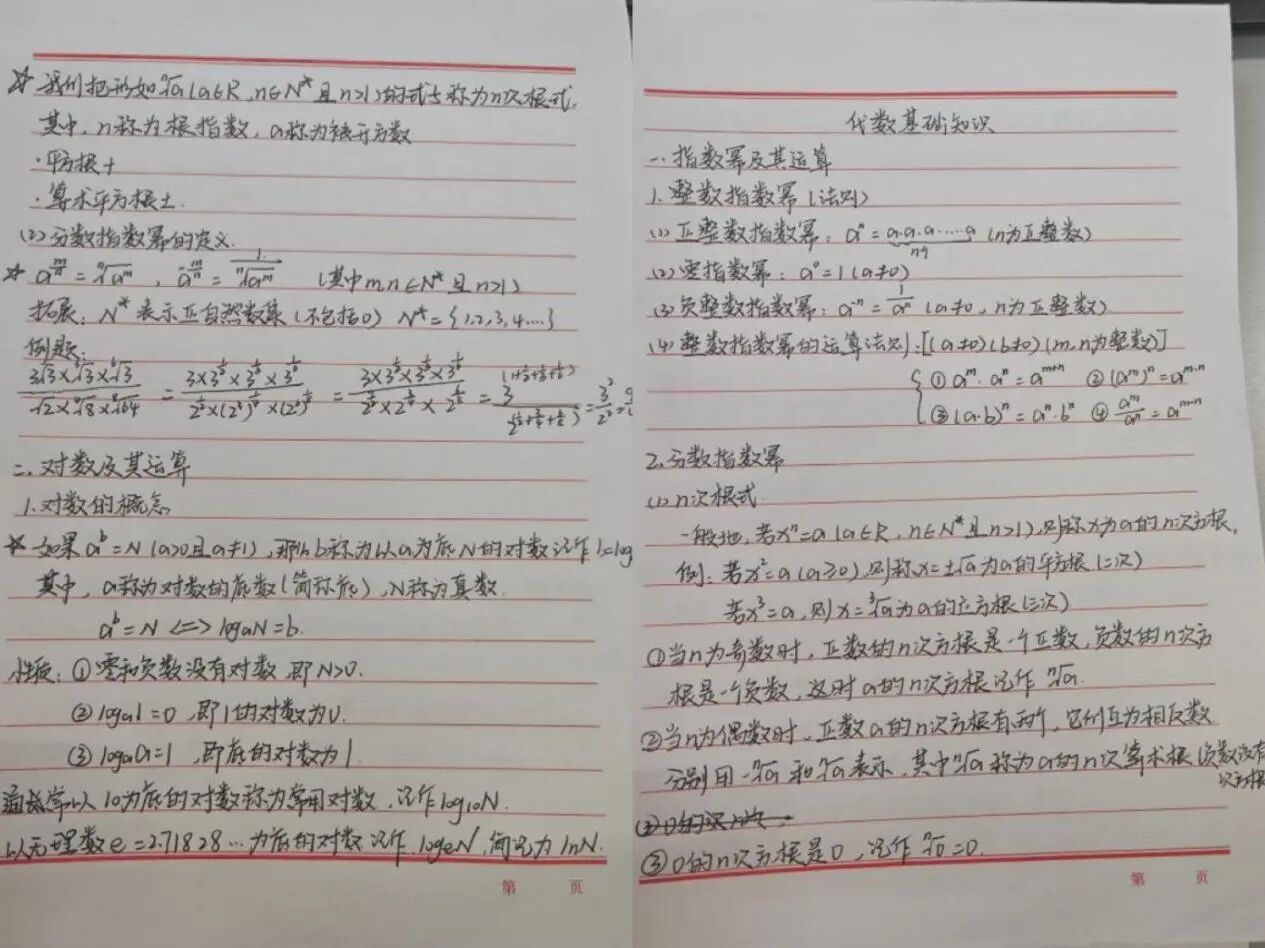 ☆ 我们把形如ⁿ√a (a∈R,n∈N*且n>1)的式子称为n次根式。
其中,n称为根指数,a称为被开方数
·平方根 +
·算术平方根 ±
(2)分数指数幂的定义.
☆ a^(m/n) = ⁿ√a^m , a^(-m/n) = 1/ⁿ√a^m (其中m,n∈N*且n>1)
拓展:N*表示正自然数集(不包括0) N*={1,2,3,4…}
例题:
二.对数及其运算
1.对数的概念
☆ 如果a^b=N (a>0且a≠1),那么b称为以a为底N的对数记作b=log
其中,a称为对数的底数(简称底),N称为真数.
a^b=N <=> logaN=b.
性质:①零和负数没有对数,即N>0.
②loga1=0,即1的对数为0.
③logaa=1,即底的对数为1
通常以10为底的对数称为常用对数,记作log10N.
以无理数e=2.71828…为底的对数记作logeN,简记为lnN.
第 页
代数基础知识
一.指数幂及其运算
1.整数指数幂(法则)
(1)正整数指数幂:aⁿ=a·a·a·…·a (n为正整数)
n个
(2)零指数幂:a⁰=1(a≠0)
(3)负整数指数幂:a⁻ⁿ=1/aⁿ (a≠0,n为正整数)
(4)整数指数幂的运算法则:[(a≠0)(b≠0)(m,n为整数)]
①a^m·a^n=a^(m+n) ②(a^m)^n=a^(m·n)
③(a·b)^n=a^n·b^n ④a^m/a^n=a^(m-n)
2.分数指数幂
(1)n次根式
一般地,若xⁿ=a(a∈R,n∈N*且n>1),则称x为a的n次方根。
例:若x²=a(a≥0),则称x=±√a为a的平方根(二次)
若x³=a,则x=³√a为a的立方根(三次)
①当n为奇数时,正数的n次方根是一个正数,负数的n次方
根是一个负数,这时a的n次方根记作ⁿ√a.
②当n为偶数时,正数a的n次方根有两个,它们互为相反数
分别用-ⁿ√a和ⁿ√a表示,其中ⁿ√a称为a的n次算术根(负数没有
次方根
③0的n次方根是0,记作ⁿ√0=0.
第 页